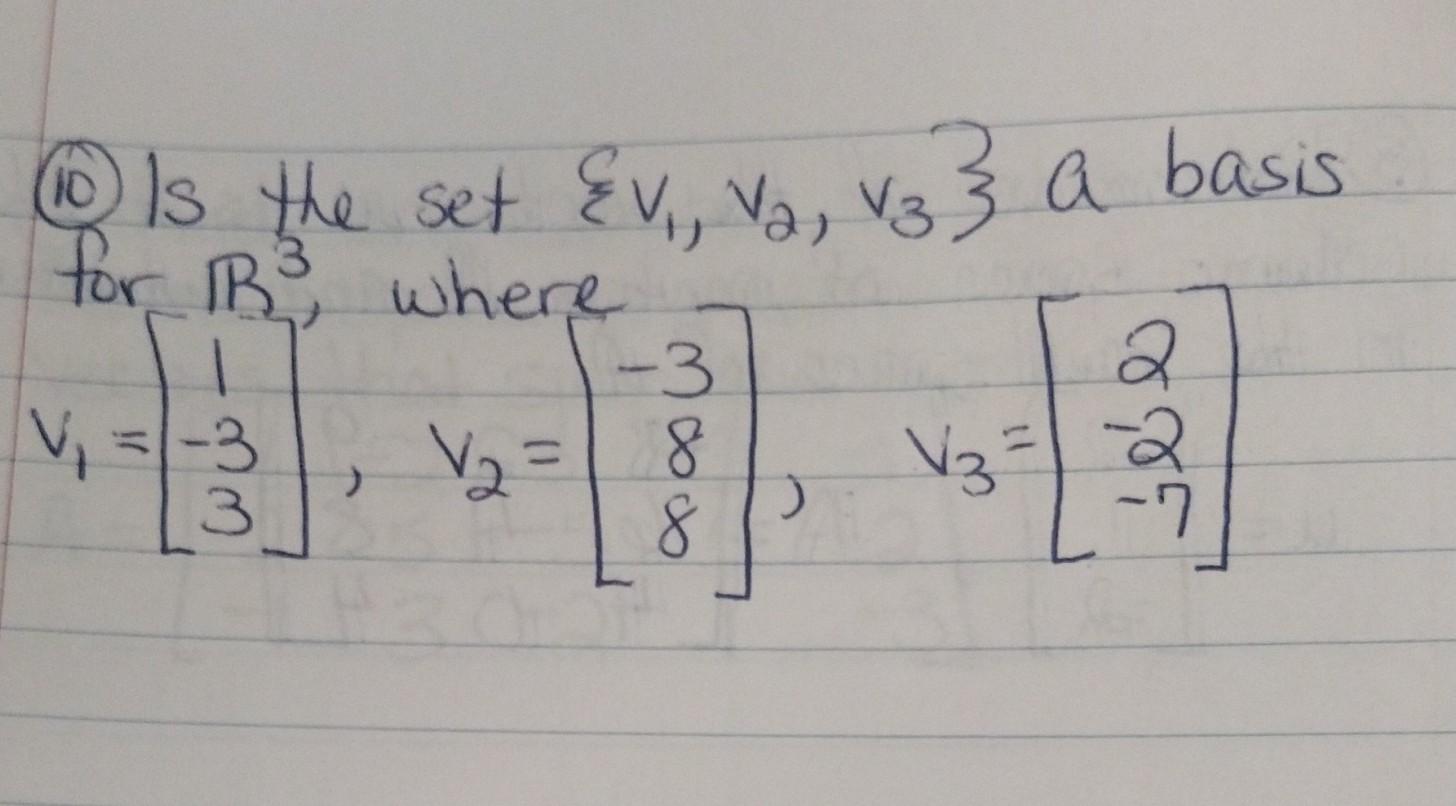 ⑩ Is the set {v₁, v₂, v₃} a basis
for ℝ³, where
v₁ = [1 -3 3], v₂ = [-3 8 8], v₃ = [2 -2 -7]